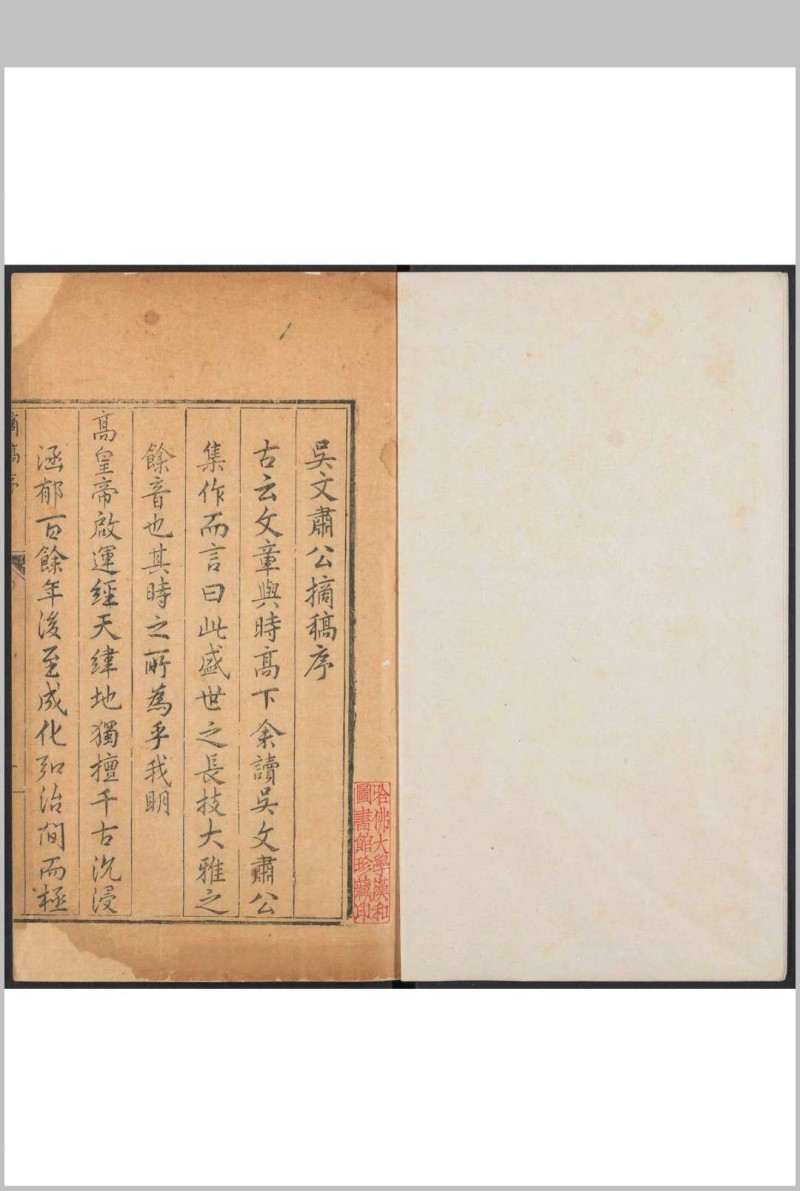 吳文肅公摘稿序
古云文章與時高下余讀吳文肅公
集作而言曰此盛世之長技大雅之
餘音也其時之所為乎我明
高皇帝啟運經天緯地獨擅千古沉浸
涵郁百餘年後至成化弘治間而極
摘稿序
哈佛大學漢和
圖書館珍藏印